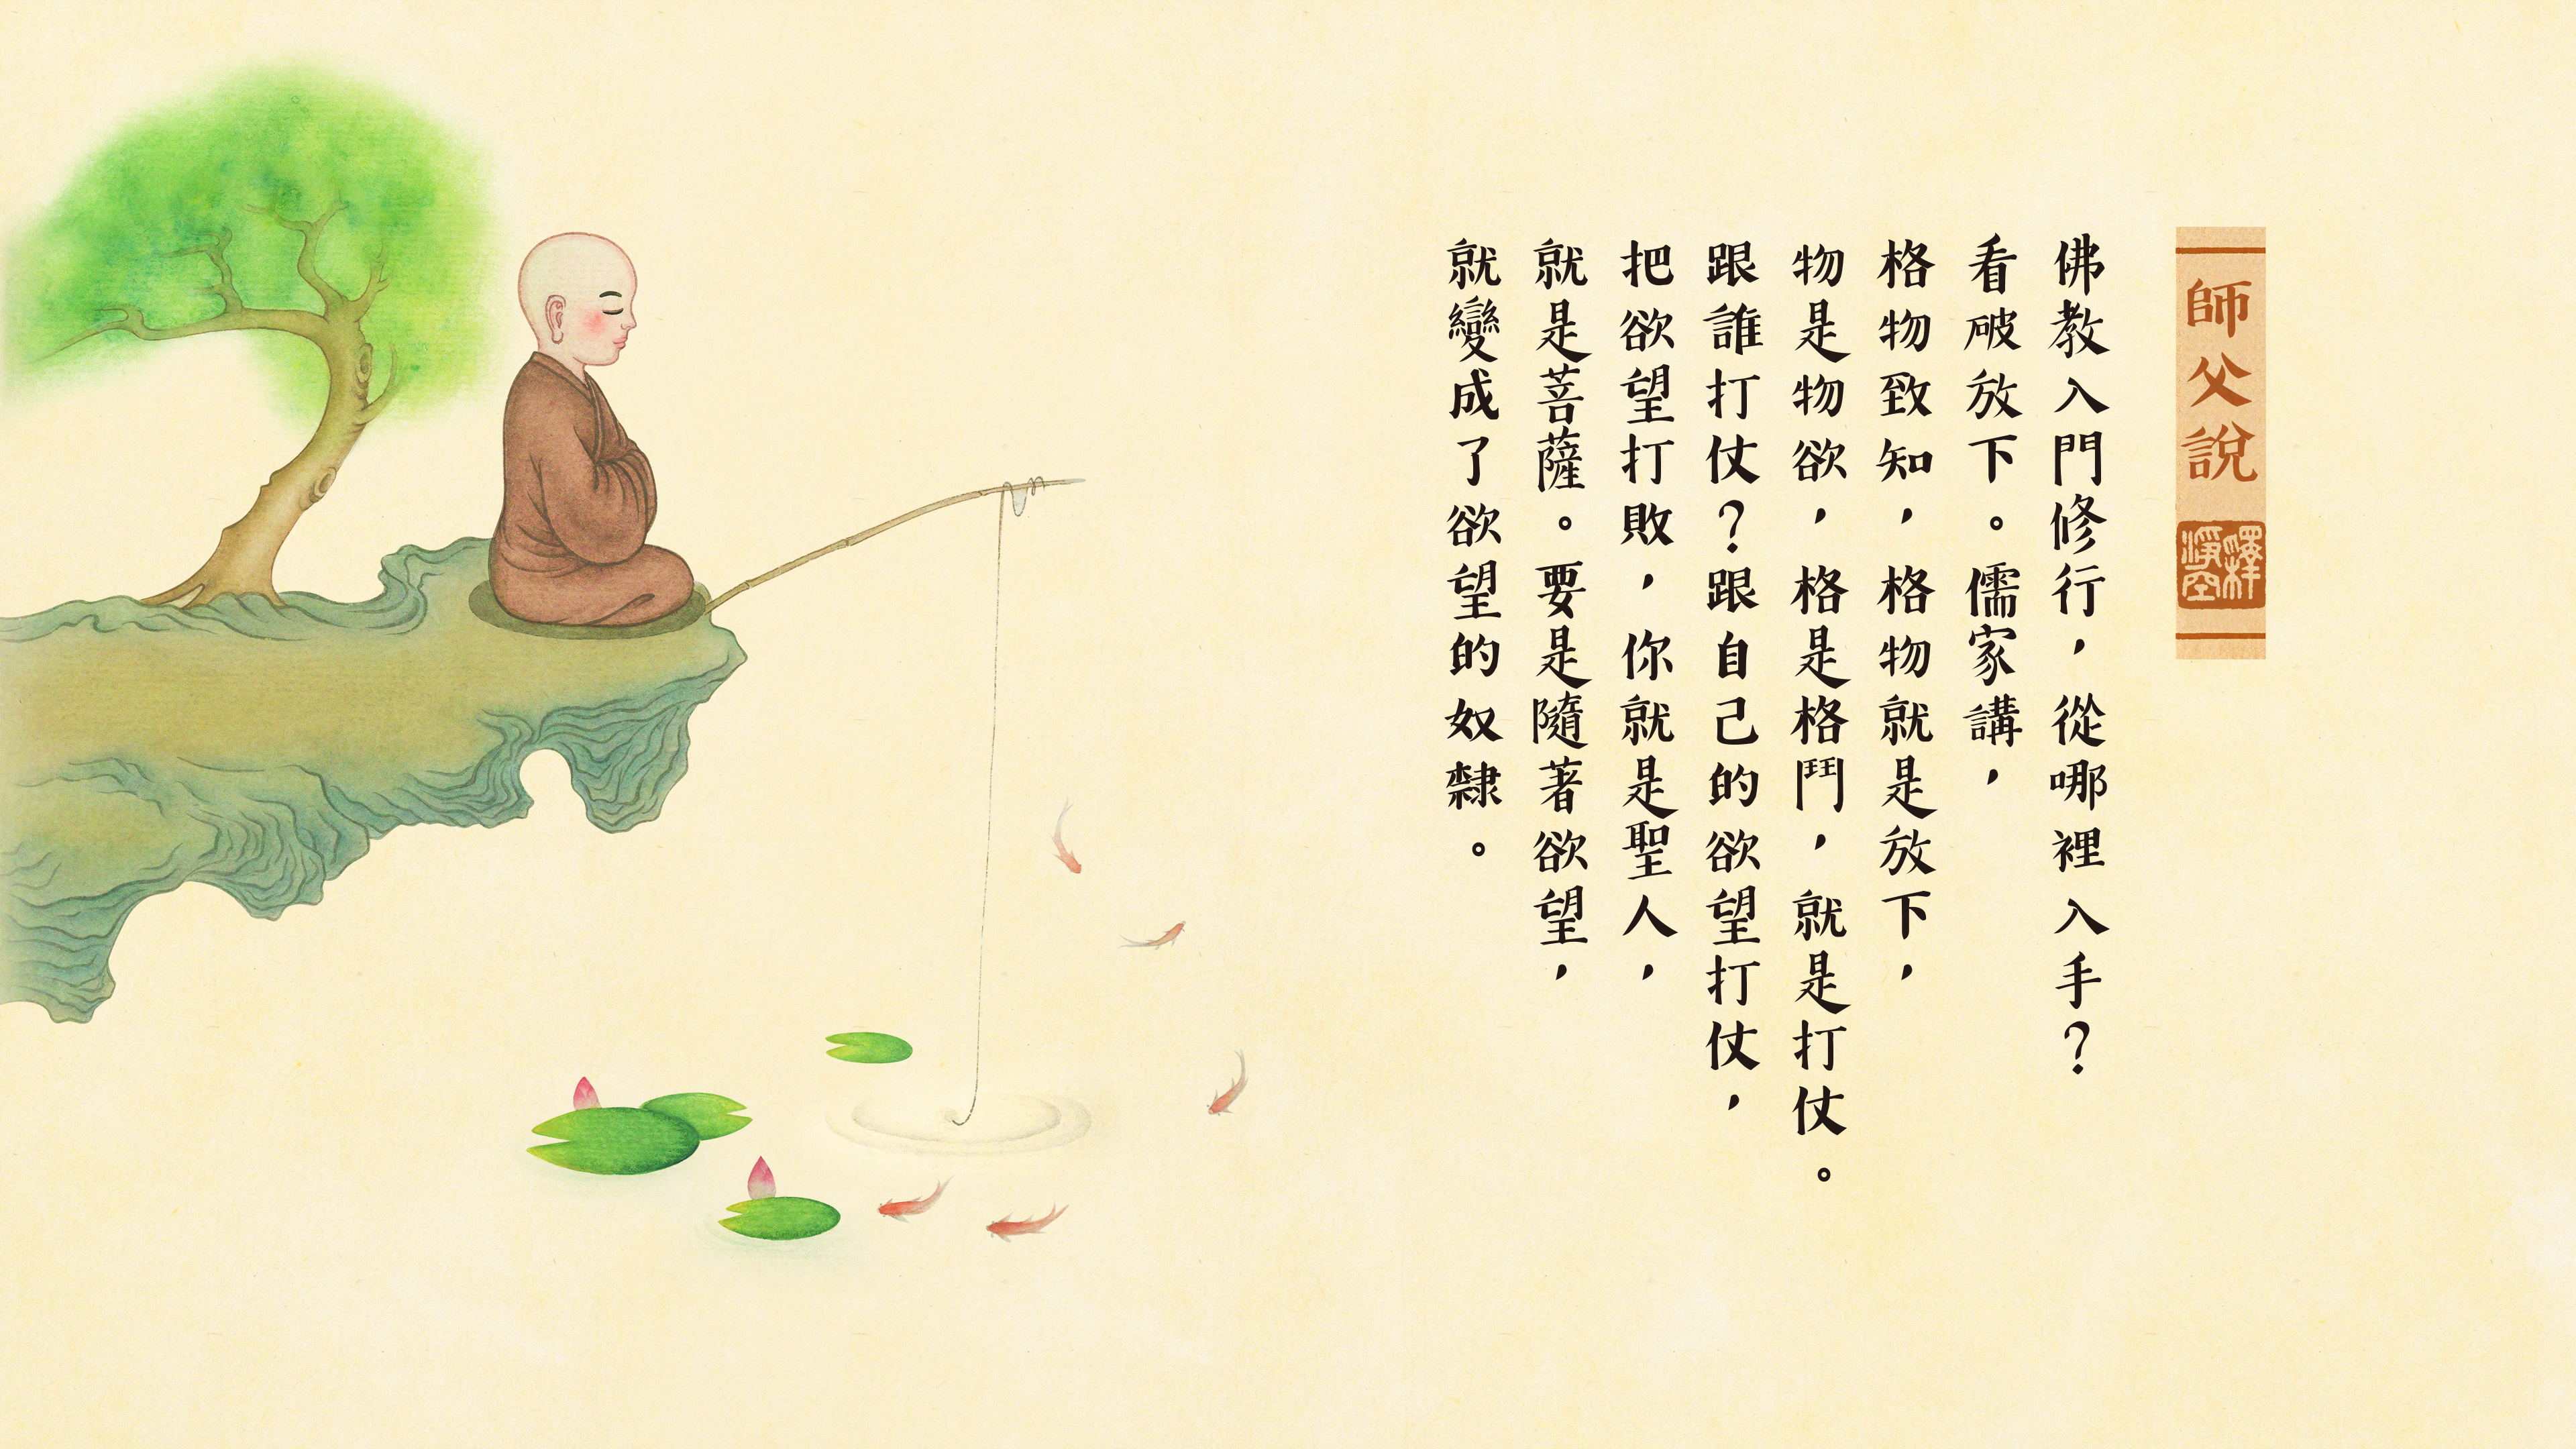 師父說
釋淨空
佛教入門修行，從哪裡入手？
看破放下。儒家講，
格物致知，格物就是放下，
物是物欲，格是格鬥，就是打仗。
跟誰打仗？跟自己的欲望打仗，
把欲望打敗，你就是聖人，
就是菩薩。要是隨著欲望，
就變成了欲望的奴隸。